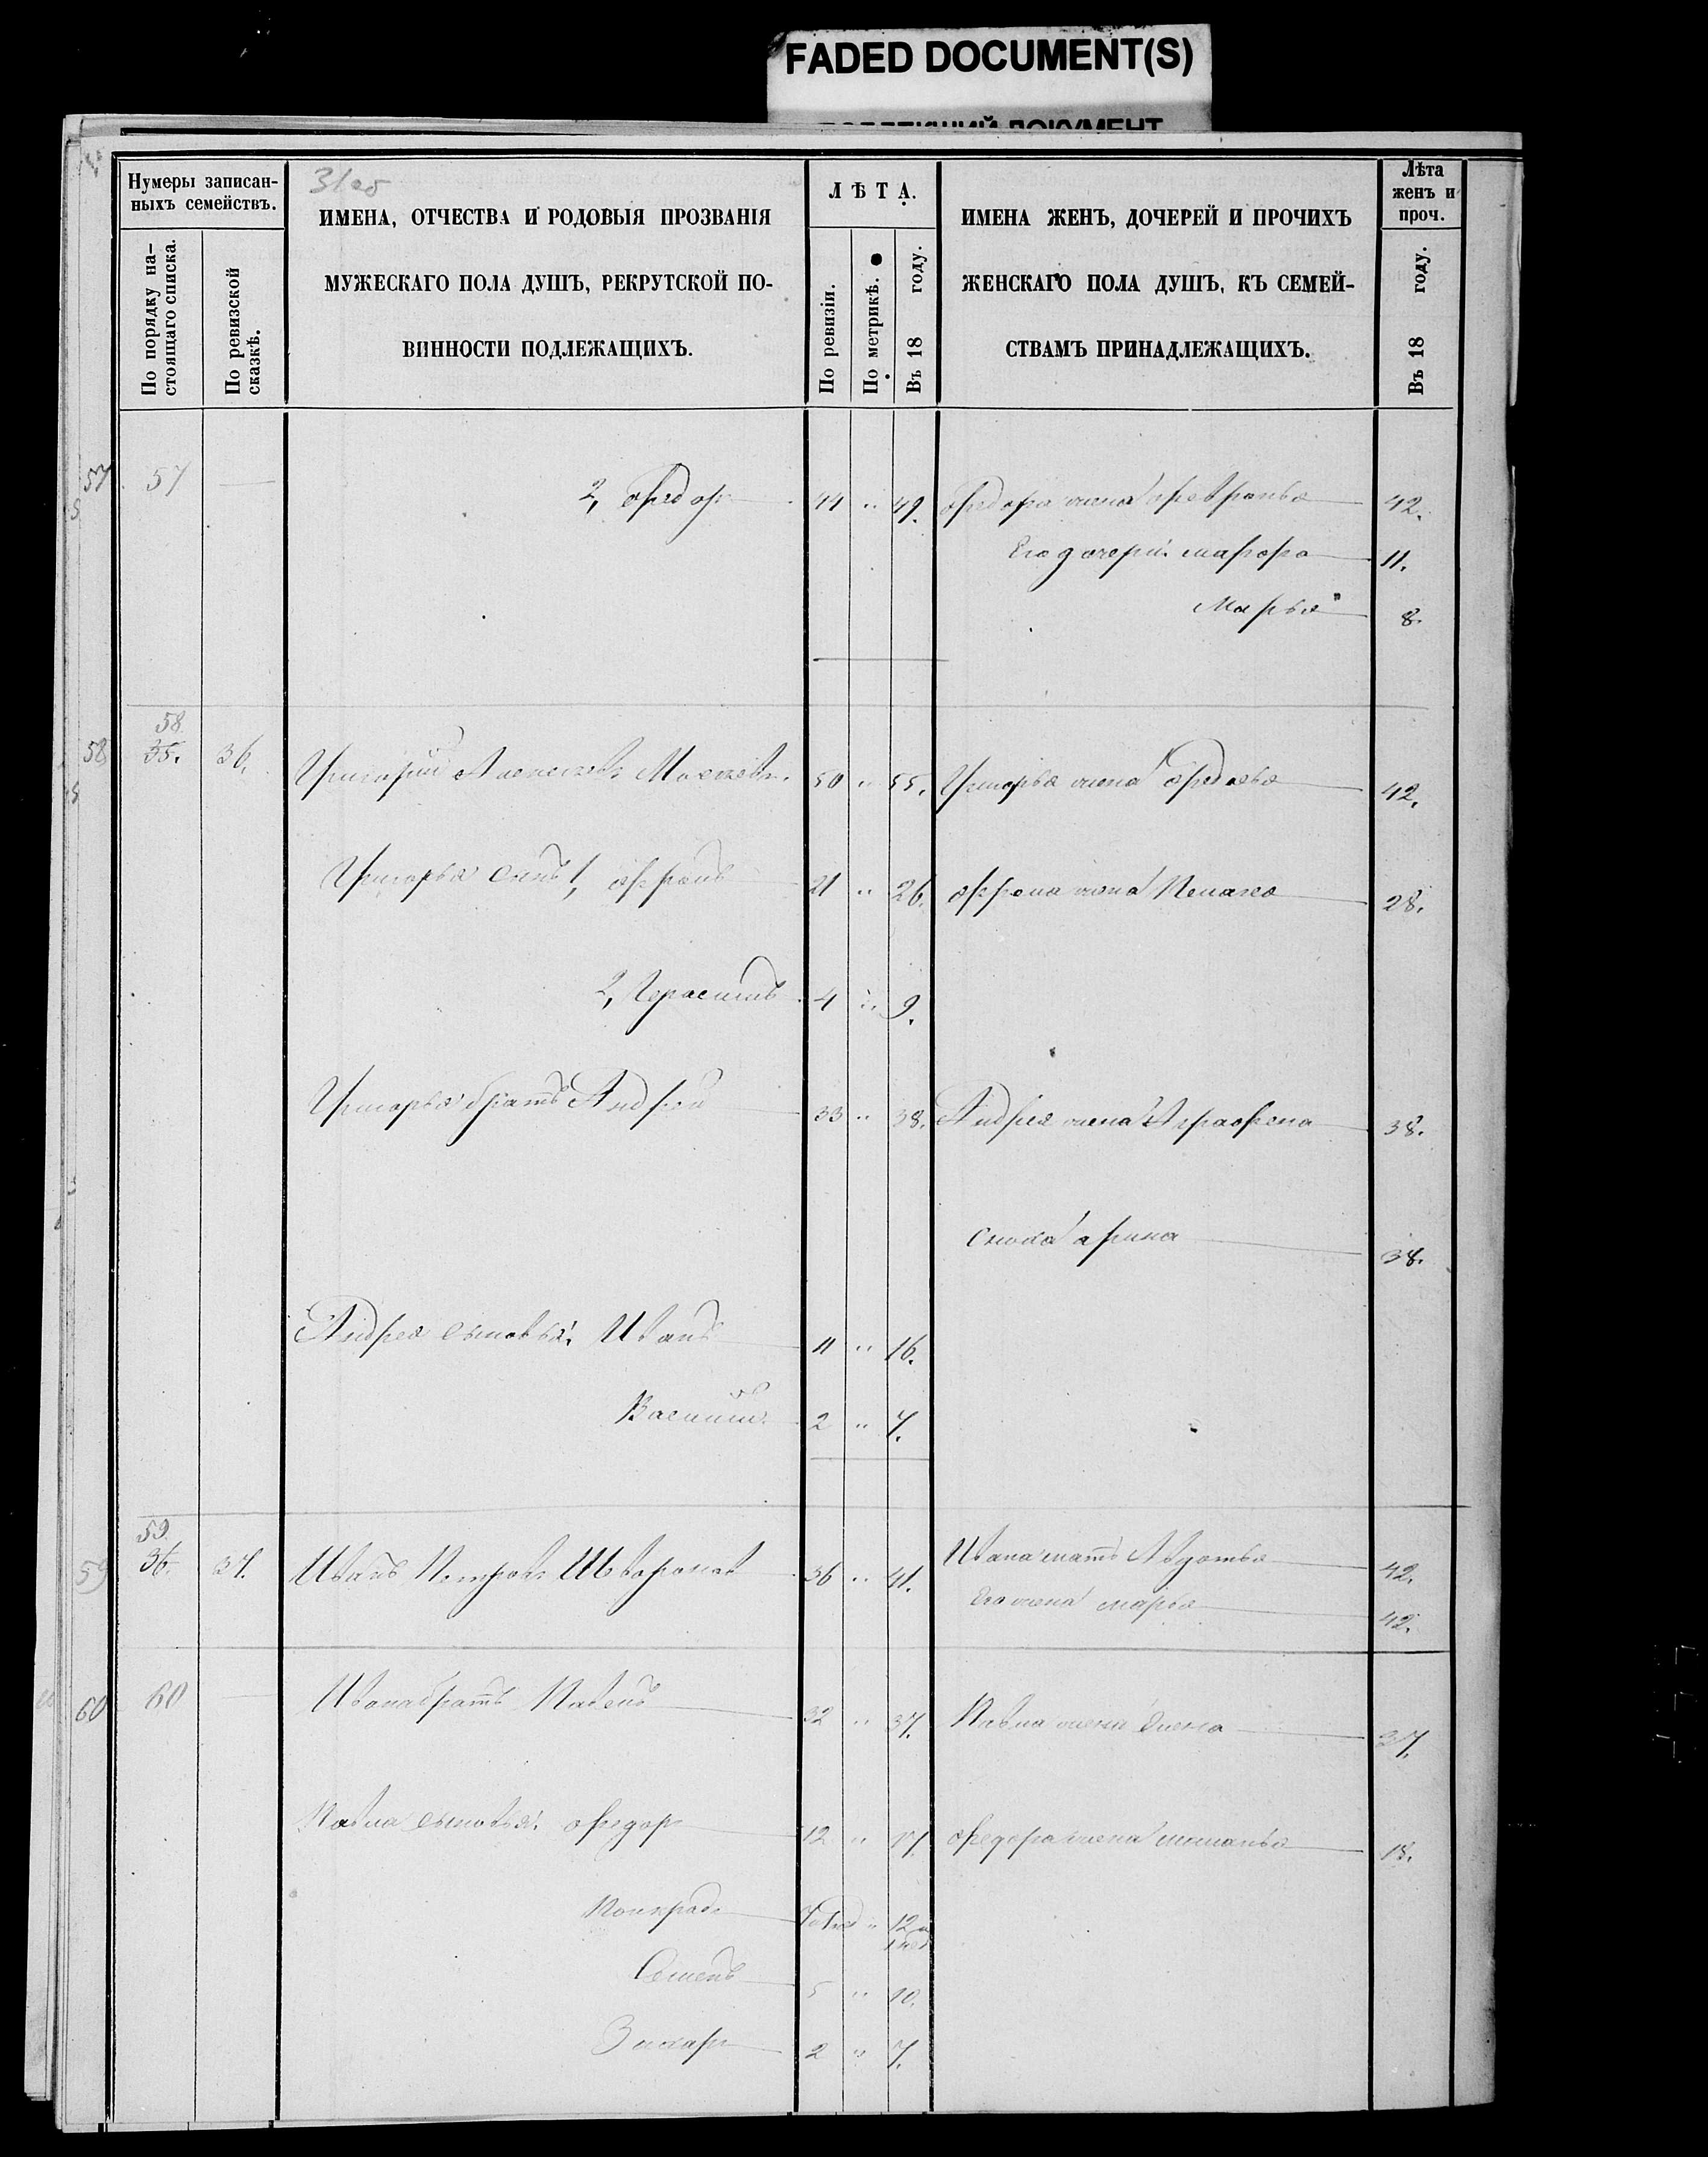 FADED DOCUMENT(S)
31 об
Нумеры записан-
ныхъ семействъ.
По порядку на-
стоящаго списка.
По ревизской
сказкѣ.
ИМЕНА, ОТЧЕСТВА И РОДОВЫЯ ПРОЗВАНІЯ
МУЖЕСКАГО ПОЛА ДУШЪ, РЕКРУТСКОЙ ПО-
ВИННОСТИ ПОДЛЕЖАЩИХЪ.
ЛѢТА.
По ревизіи.
По метрикѣ.
Въ 18 году.
ИМЕНА ЖЕНЪ, ДОЧЕРЕЙ И ПРОЧИХЪ
ЖЕНСКАГО ПОЛА ДУШЪ, КЪ СЕМЕЙ-
СТВАМЪ ПРИНАДЛЕЖАЩИХЪ.
Лѣта
женъ и
проч.
Въ 18 году.
57 57 2, Федоръ 44 " 49. Федора жена Февронья 42.
Его дочери: марфа 11.
Марья 8.
58
58 35. 36. Григорій Алексеевъ 50 " 55. Григорья жена Федосья 42.
Григорья сынъ 1, 21 " 26. жена 28.
2, Герасимъ 4 " 9.
Григорья братъ Андрей 33 " 38. Андрея жена Аграфена 38.
Сноха арина 38.
Андрея сыновья: Иванъ 11 " 16.
Василий 2 " 7.
59
59 36. 37. Иванъ Петровъ 36 " 41. Ивана мать Авдотья 42.
Его жена марья 42.
60 60 Ивана братъ Павелъ 32 " 37. Павла жена Елена 37.
Павла сыновья: Федоръ 12 " 17. Федора жена 18.
" 12
Семенъ 5 " 10.
Захаръ 2 " 7.